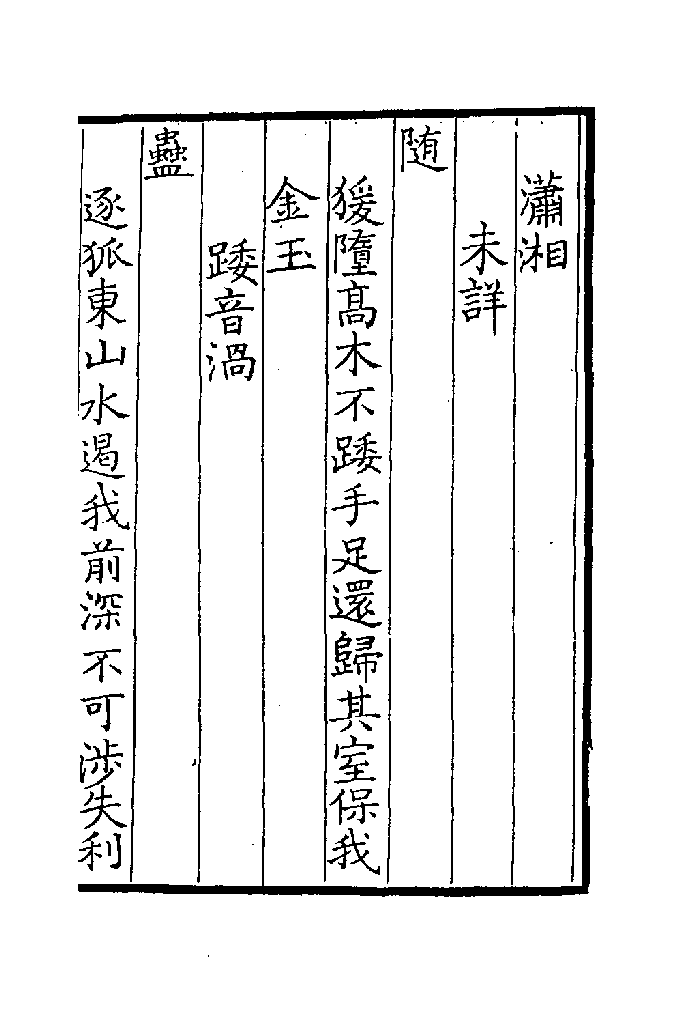 瀟湘
未詳
随
猨墮髙木不踒手足還歸其室保我
金玉
踒音渦
蠱
逐狐東山水遏我前深不可涉失利